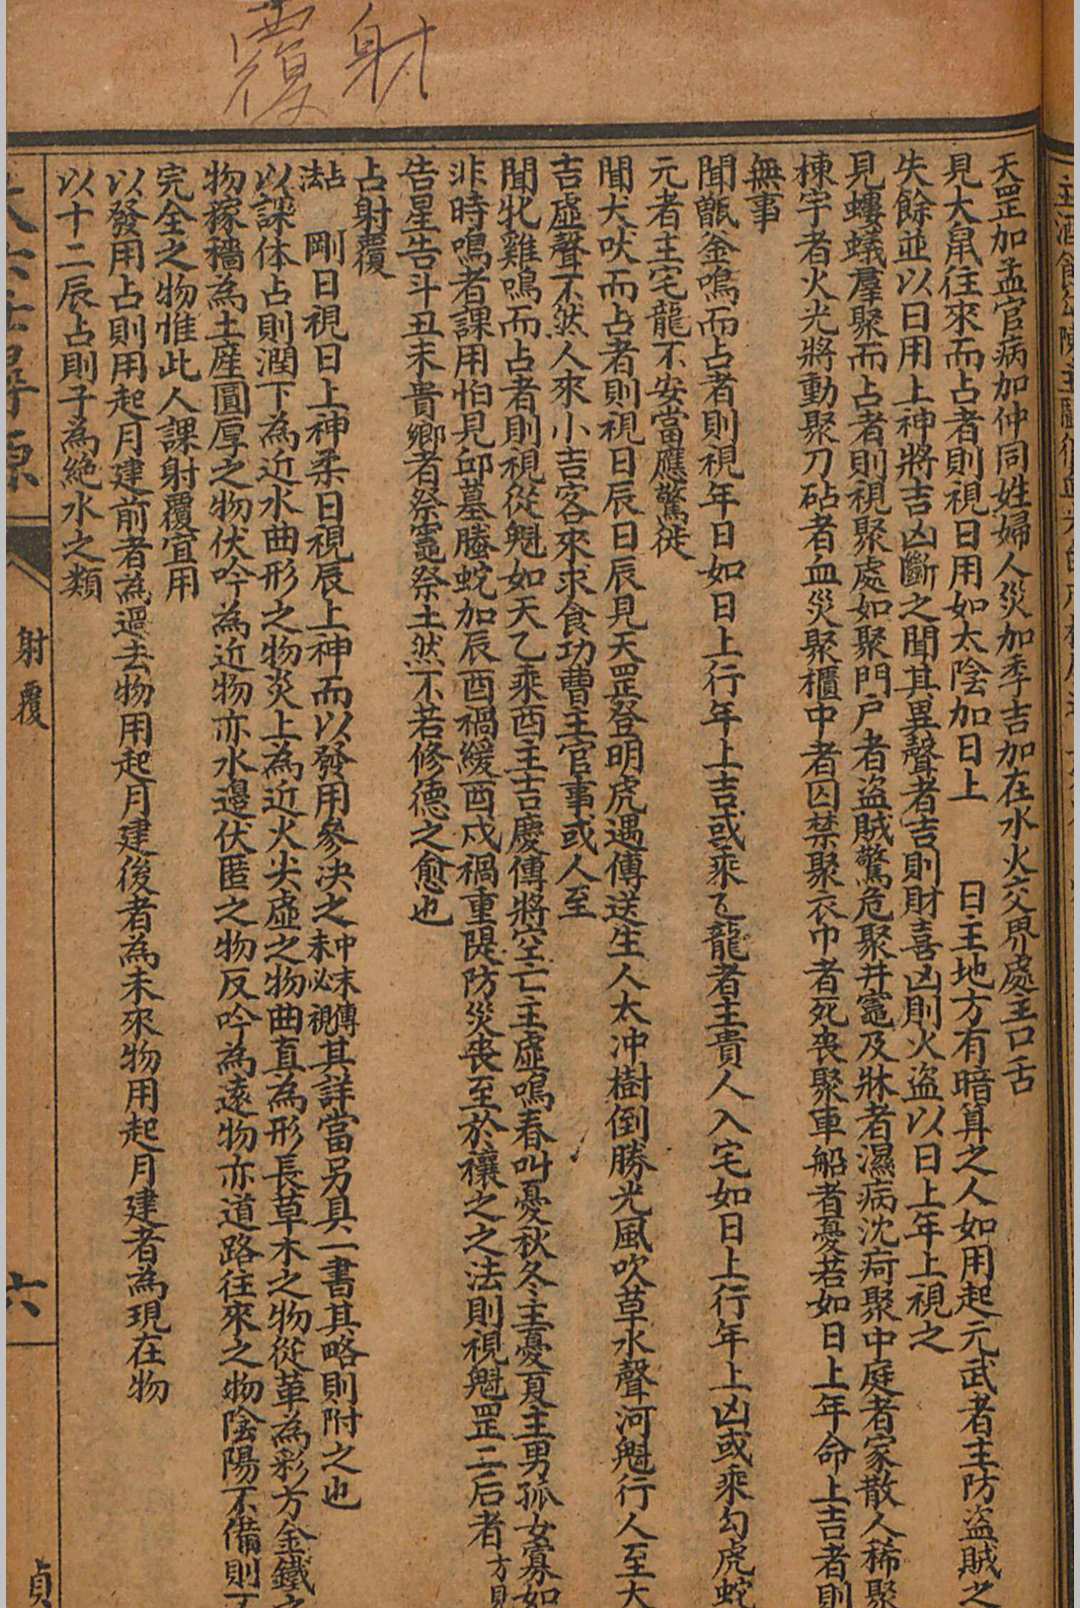 射覆
天罡加孟官病加仲同姓婦人災加季吉加在水火交界處主口舌
見大鼠往來而占者則視日用如太陰加日上　日主地方有暗算之人如用起元武者主防盜賊之
失餘並以日用上神將吉凶斷之聞其異聲者吉則財喜凶則火盜以日上年上視之
見螻蟻羣聚而占者則視聚處如聚門戶者盜賊驚危聚井竈及牀者濕病沈疴聚中庭者家散人稀聚
棟宇者火光將動聚刀砧者血災聚櫃中者囚禁聚衣巾者死喪聚車船者憂若如日上年命上吉者則
無事
聞甑釜鳴而占者則視年日如日上行年上吉或乘乙龍者主貴人入宅如日上行年上凶或乘勾虎蛇
元者主宅龍不安當應驚徙
聞犬吠而占者則視日辰日辰見天罡登明虎遇傳送生人太冲樹倒勝光風吹草水聲河魁行人至大
吉虛聲不然人來小吉客來求食功曹主官事或人至
聞牝雞鳴而占者則視從魁如天乙乘酉主吉慶傳將空亡主虛鳴春叫憂秋冬主憂夏主男孤女寡如
非時鳴者課用怕見邱墓螣蛇加辰酉禍緩酉戌禍重隄防災喪至於禳之之法則視魁罡二后者
告星告斗丑未貴鄉者祭竈祭土然不若修德之愈也
占射覆
法占　剛日視日上神柔日視辰上神而以發用參決之中末傳未必視其詳當另具一書其略則附之也
以課体占則潤下為近水曲形之物炎上為近火尖虛之物曲直為形長草木之物從革為彩方金鐵之
物稼穡為土產圓厚之物伏吟為近物亦水邊伏匿之物反吟為遠物亦道路往來之物陰陽不備則不
完全之物惟此人課射覆宜用
以發用占則用起月建前者為過去物用起月建後者為未來物用起月建者為現在物
以十二辰占則子為絶水之類
射覆
六
貞